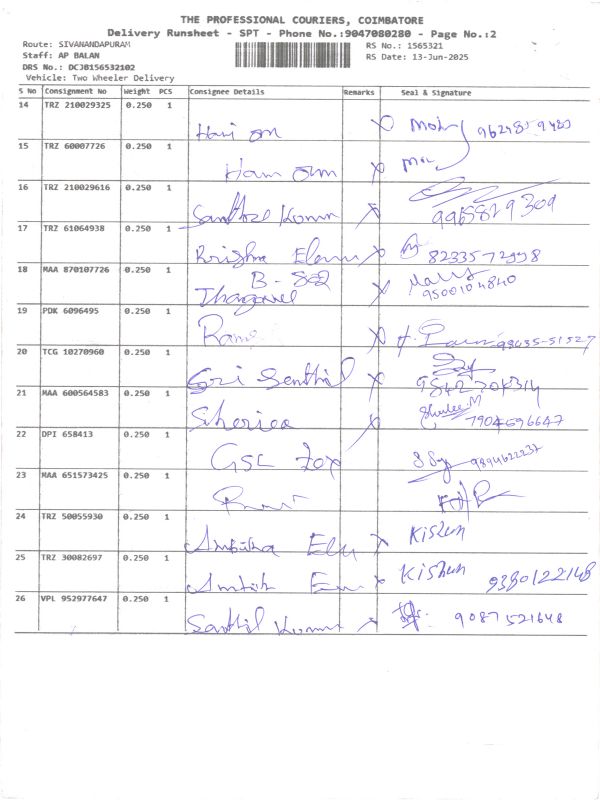 THE PROFESSIONAL COURIERS, COIMBATORE
Delivery Runsheet - SPT - Phone No.:9047080280 - Page No.:2
Route: SIVANANDAPURAM RS No.: 1565321
Staff: AP BALAN RS Date: 13-Jun-2025
DRS No.: DCJB156532102
Vehicle: Two Wheeler Delivery
S No Consignment No Weight PCS Consignee Details Remarks Seal & Signature
14 TRZ 210029325 0.250 1
Hari om X
15 TRZ 60007726 0.250 1
Ham om X
16 TRZ 210029616 0.250 1
Santhose Kumm X 9965829309
17 TRZ 61064938 0.250 1
Krishna Elann X 8233572998
18 MAA 870107726 0.250 1 B - 802
Thangavel X 9500104840
19 PDK 6096495 0.250 1
Rams X 98435-51527
20 TCG 10270960 0.250 1
Sri Senthil X 9842704314
21 MAA 600564583 0.250 1
Sheriea X Sherlee.M 7904696647
22 DPI 658413 0.250 1
GSL 9894622237
23 MAA 651573425 0.250 1
24 TRZ 50055930 0.250 1
Ambika Kishen
25 TRZ 30082697 0.250 1
Kishen 9380122148
26 VPL 952977647 0.250 1
Santhil Kumm X 9087521648